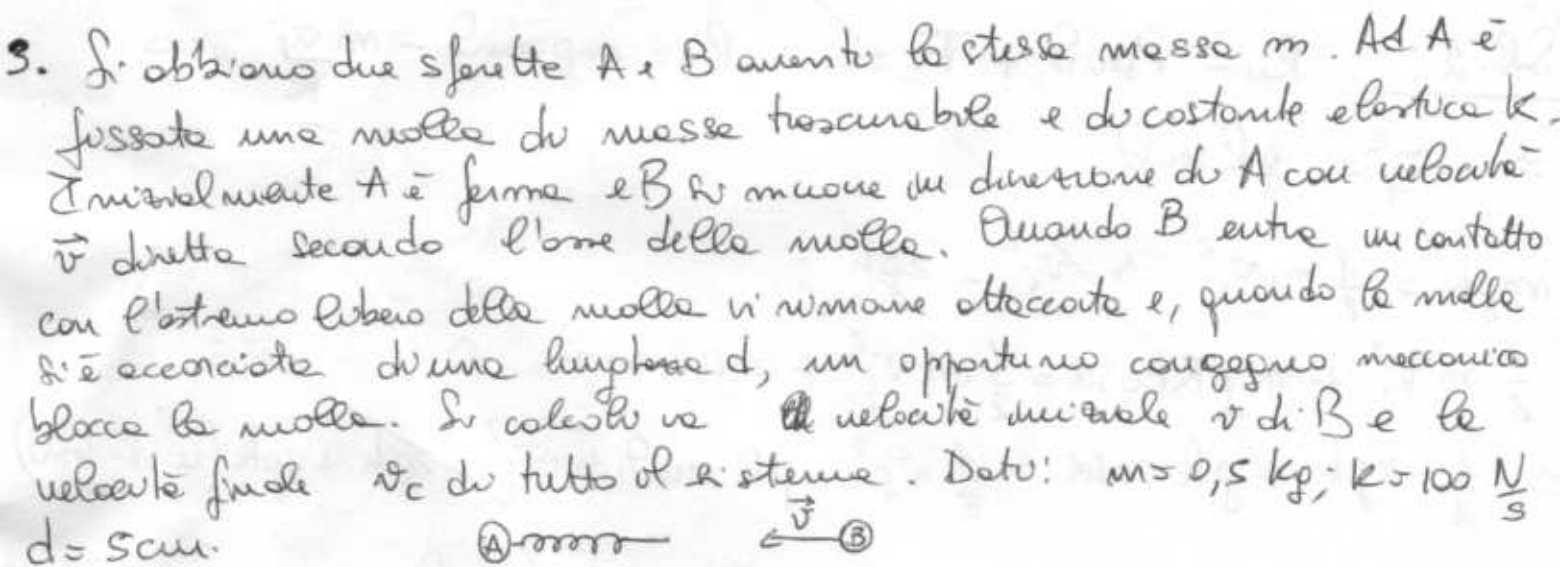 3. Si abbiano due sferette A e B aventi la stessa massa m. Ad A è
fissata una molla di massa trascurabile e di costante elastica K.
Inizialmente A è ferma e B si muove in direzione di A con velocità
v⃗ diretta secondo l'asse della molla. Quando B entra in contatto
con l'estremo libero della molla vi rimane attaccata e, quando la molla
si è accorciata di una lunghezza d, un opportuno congegno meccanico
blocca la molla. Si calcoli la velocità iniziale v di B e la
velocità finale v_c di tutto il sistema. Dati: m = 0,5 kg; K = 100 N/s
d = 5 cm.
A v⃗ B